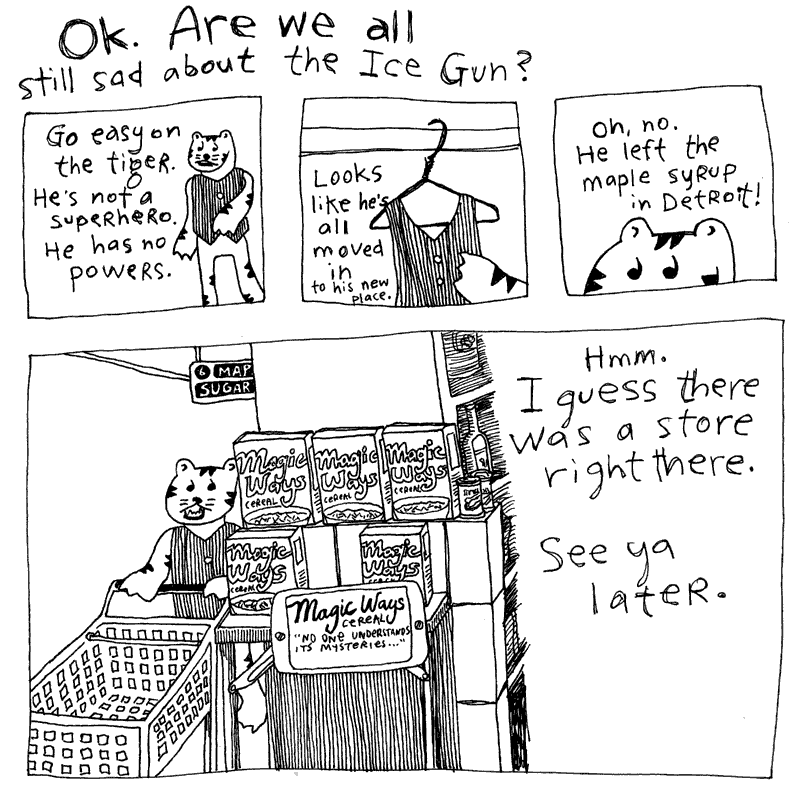 Ok. Are we all
still sad about the Ice Gun?
Go easy on
the tiger.
He's not a
superhero.
He has no
powers.
Looks
like he's
all
moved
in
to his new
place.
Oh, no.
He left the
maple syrup
in Detroit!
6 MAP
SUGAR
Magic
Ways
CEREAL
Magic
Ways
CEREAL
Magic
Ways
CEREAL
Magic
Ways
CEREAL
Magic
Ways
Magic Ways
CEREAL
"NO ONE UNDERSTANDS
ITS MYSTERIES..."
Hmm.
I guess there
was a store
right there.
See ya
later.